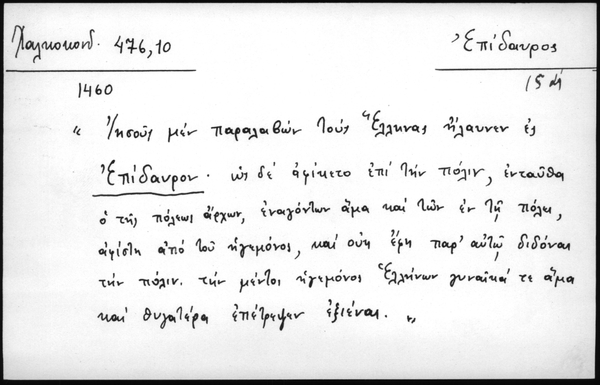 Χαλκοκονδ. 476,10
Ἐπίδαυρος
15 αἰ
1460
" Ἰησοῦς μέν παραλαβών τούς Ἕλληνας ἤλαυνεν ἐς
Ἐπίδαυρον · ὡς δέ ἀφίκετο ἐπί τήν πόλιν, ἐνταῦθα
ὁ τῆς πόλεως ἄρχων, ἐναγόντων ἅμα καί τῶν ἐν τῇ πόλει,
ἀφίστη ἀπό τοῦ ἡγεμόνος, καί οὐκ ἔφη παρ' αὐτῷ διδόναι
τήν πόλιν. τήν μέντοι ἡγεμόνος Ἑλλήνων γυναῖκά τε ἅμα
καί θυγατέρα ἐπέτρεψεν ἐξιέναι. "